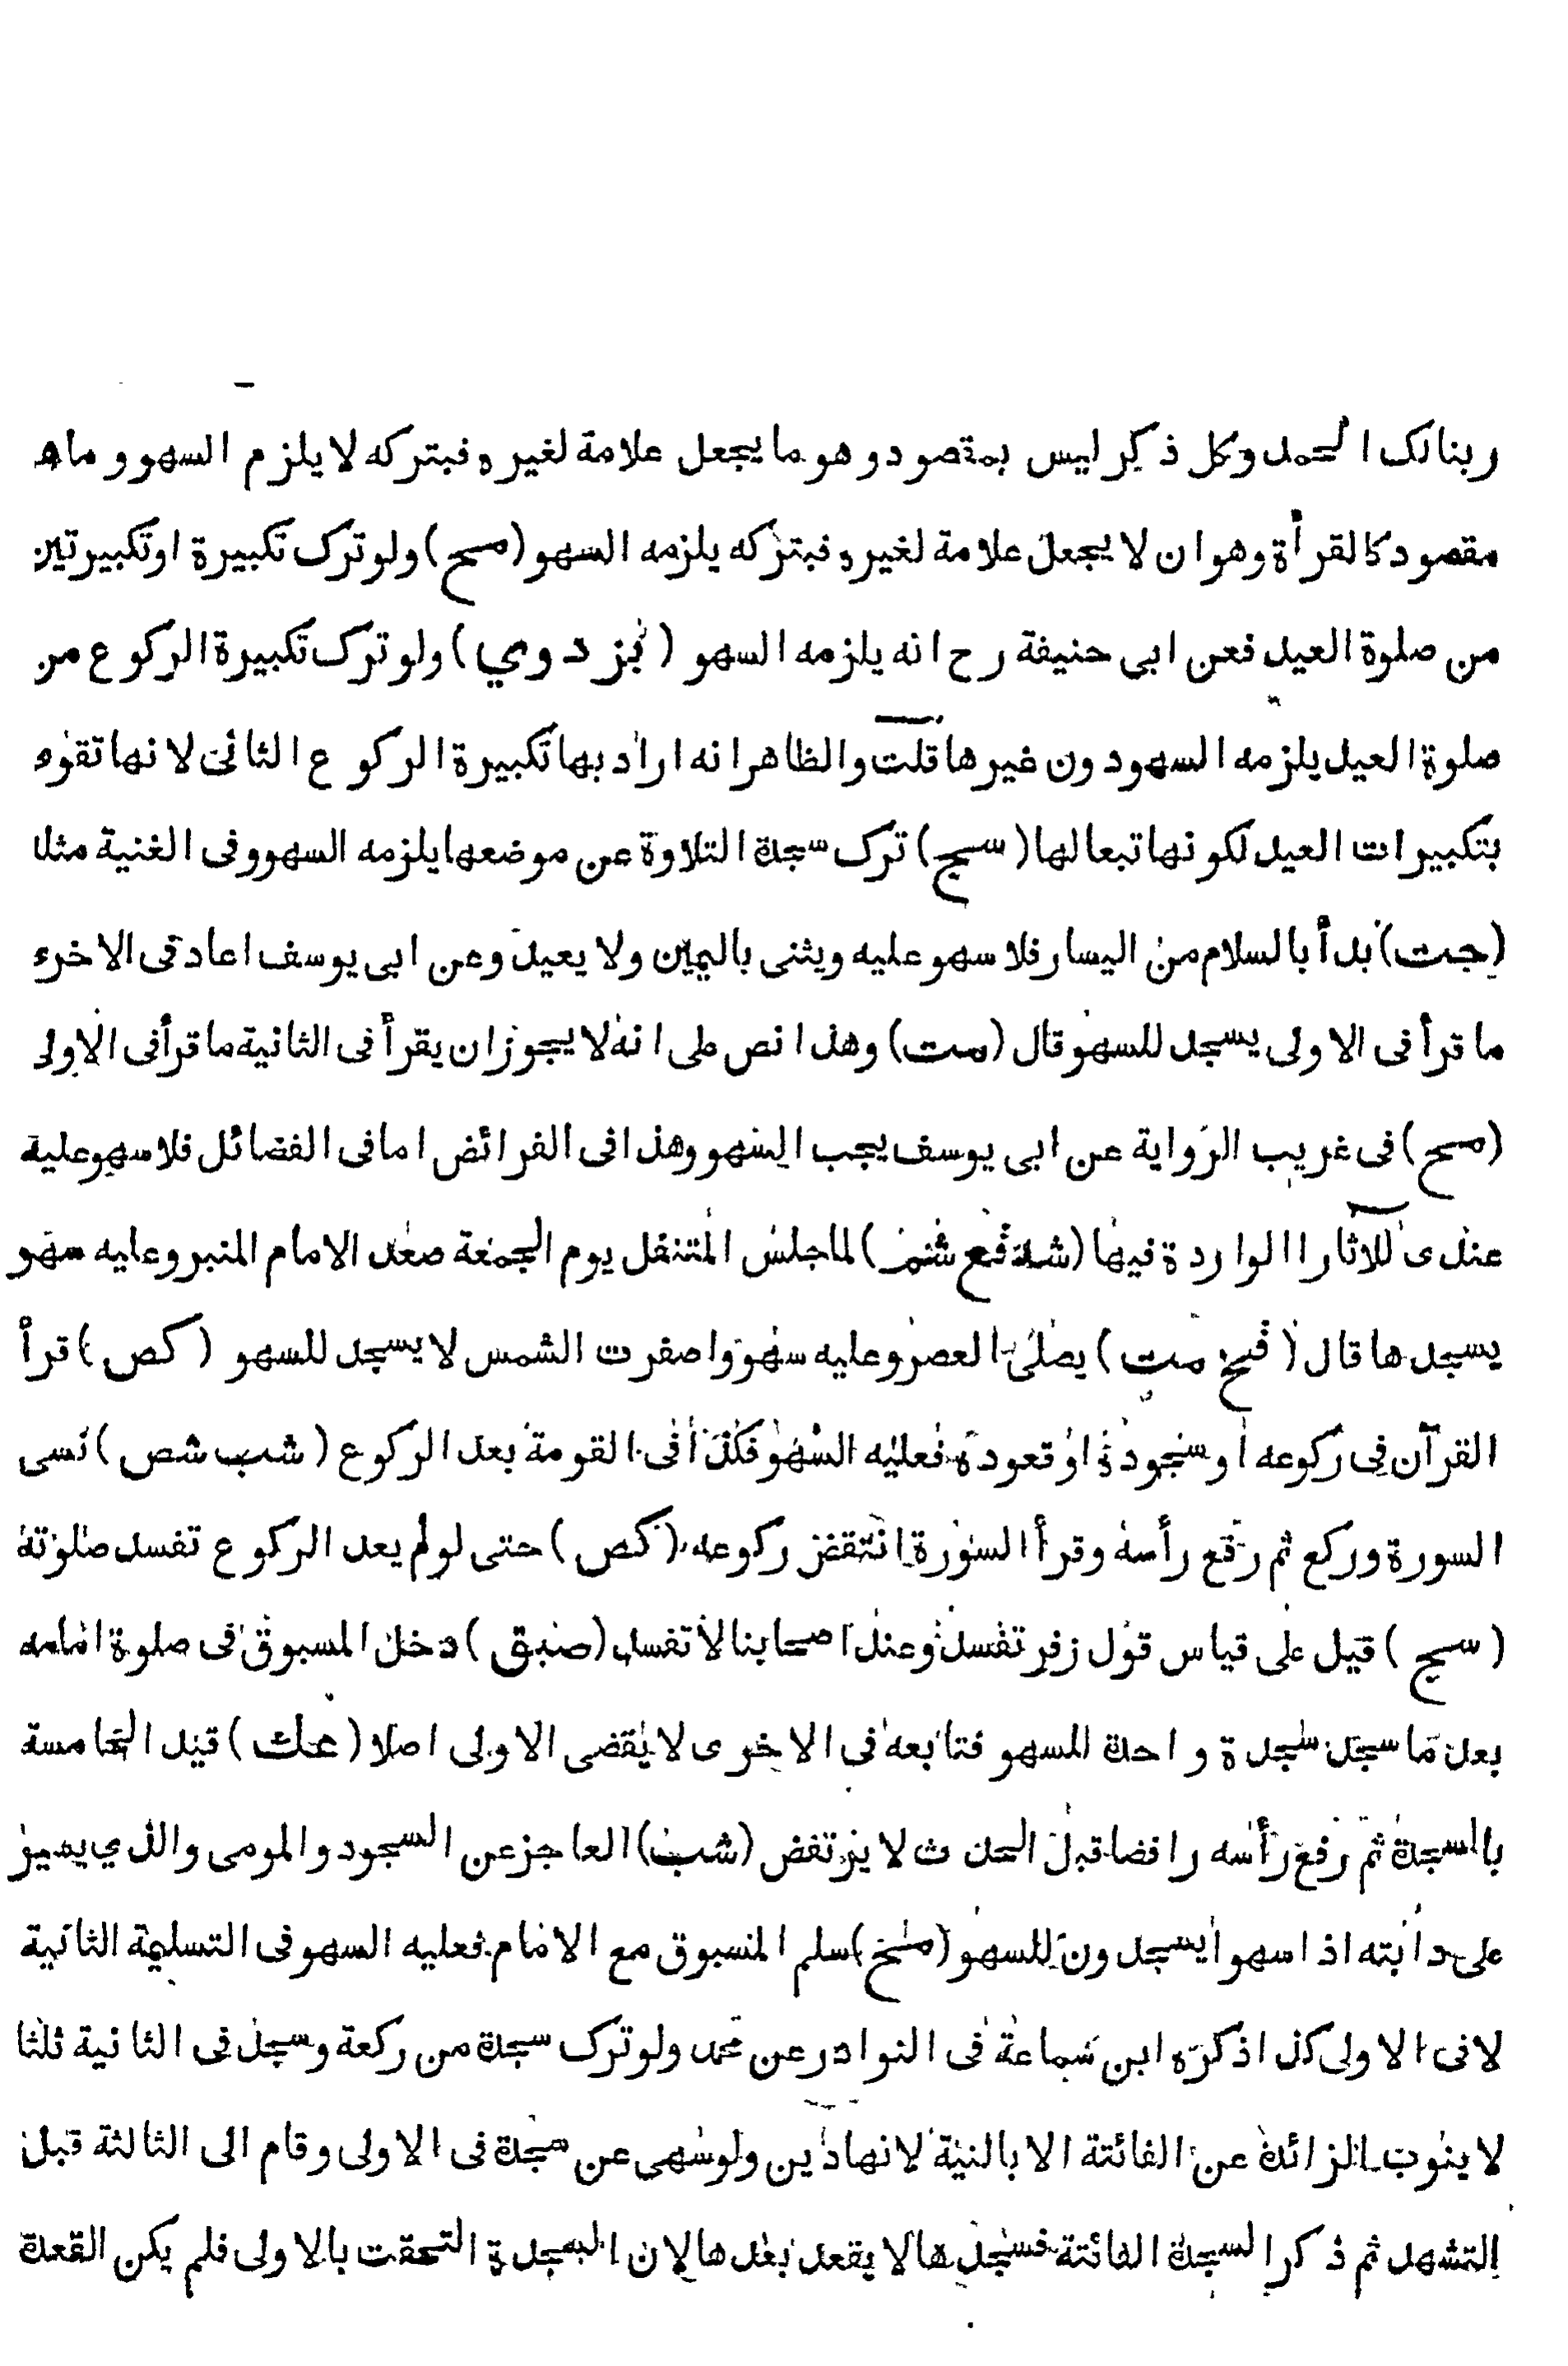 ربنا لك الحمد وكل ذكر ليس بمقصود وهو ما يجعل علامة لغيره فبتركه لا يلزم السهو وما هو
مقصود كالقرأة وهو ان لا يجعل علامة لغيره فبتركه يلزمه السهو (مسح) ولو ترك تكبيرة او تكبيرتين
من صلوة العيد فعن ابى حنيفة رح انه يلزمه السهو (بزدوي) ولو ترك تكبيرة الركوع من
صلوة العيد يلزمه السهو دون غيرها قلت والظاهر انه اراد بها تكبيرة الركوع الثانى لانها تقوم
بتكبيرات العيد لكونها تبعا لها (سج) ترك سجدة التلاوة عن موضعها يلزمه السهو وفى الغنية مثله
(جت) بدأ بالسلام من اليسار فلا سهو عليه ويثنى باليمين ولا يعيد وعن ابى يوسف اعاد فى الاخرى
ما قرأ فى الاولى يسجد للسهو قال (مت) وهذا نص على انه لا يجوز ان يقرأ فى الثانية ما قرأ فى الاولى
(مسح) فى غريب الرواية عن ابى يوسف يجب السهو وهذا فى الفرائض اما فى الفضائل فلا سهو عليه
عندى للاثار الواردة فيها (شد فع شم) لما جلس المتنفل يوم الجمعة صعد الامام المنبر وعليه سهو
يسجدها قال (فخ مت) يصلى العصر وعليه سهو واصفرت الشمس لا يسجد للسهو (كص) قرأ
القرآن فى ركوعه او سجوده او قعوده فعليه السهو فكذا فى القومة بعد الركوع (شب شص) نسى
السورة وركع ثم رفع رأسه وقرأ السورة انتقض ركوعه (كص) حتى لو لم يعد الركوع تفسد صلوته
(سج) قيل على قياس قول زفر تفسد وعند اصحابنا لا تفسد (صبق) دخل المسبوق فى صلوة امامه
بعد ما سجد سجدة واحدة للسهو فتابعه فى الاخرى لا يقضى الاولى اصلا (عك) قيد الخامسة
بالسجدة ثم رفع رأسه رافضا قبل الحدث لا يرتفض (شب) العاجز عن السجود والمومى والذي يسير
على دابته اذا سهوا يسجدون للسهو (مخ) سلم المسبوق مع الامام فعليه السهو فى التسليمة الثانية
لا فى الاولى كذا ذكره ابن سماعة فى النوادر عن محمد ولو ترك سجدة من ركعة وسجد فى الثانية ثلثا
لا ينوب الزائدة عن الفائتة الا بالنية لانها دين ولو سهى عن سجدة فى الاولى وقام الى الثالثة قبل
التشهد ثم ذكر السجدة الفائتة فسجدها لا يقعد بعدها لان السجدة التحقت بالاولى فلم يكن القعدة